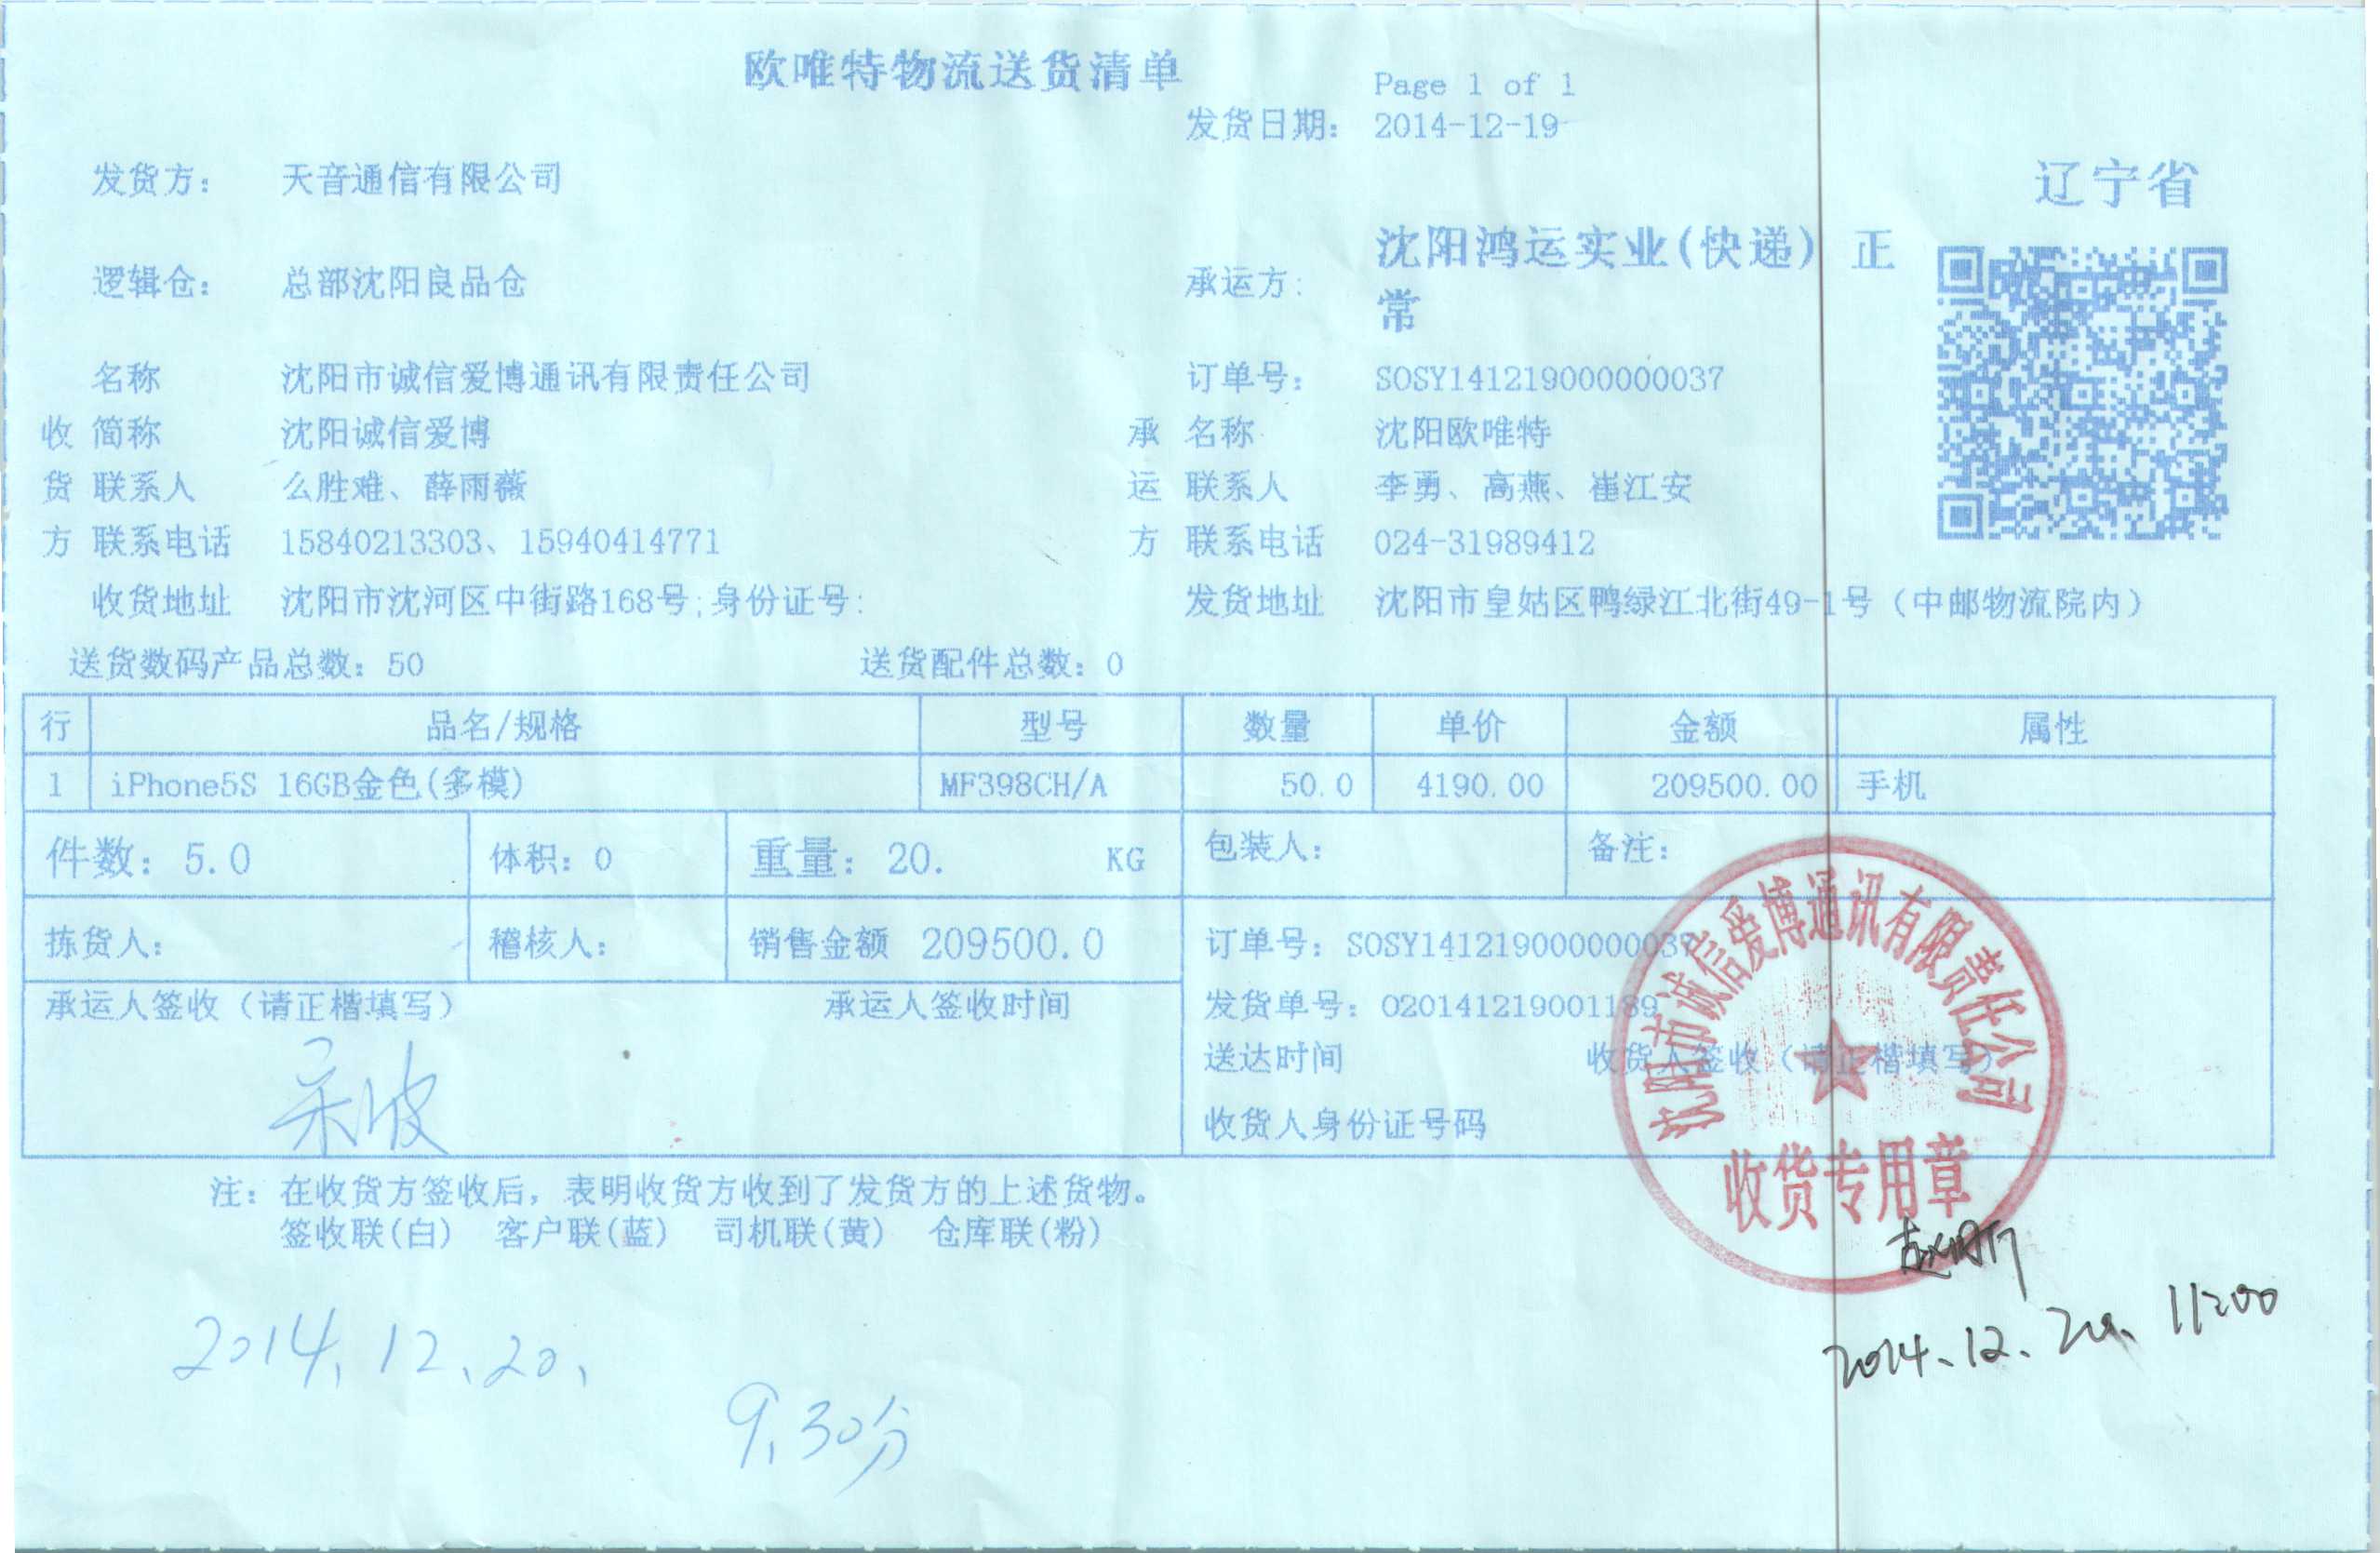 欧唯特物流送货清单
Page 1 of 1
发货日期: 2014-12-19
发货方: 天音通信有限公司
辽宁省
逻辑仓: 总部沈阳良品仓
承运方: 沈阳鸿运实业(快递) 正
常
名称 沈阳市诚信爱博通讯有限责任公司 订单号: SOSY141219000000037
收 简称 沈阳诚信爱博 承 名称 沈阳欧唯特
货 联系人 么胜难、薛雨薇 运 联系人 李勇、高燕、崔江安
方 联系电话 15840213303、15940414771 方 联系电话 024-31989412
收货地址 沈阳市沈河区中街路168号;身份证号: 发货地址 沈阳市皇姑区鸭绿江北街49-1号（中邮物流院内）
送货数码产品总数: 50 送货配件总数: 0
行 品名/规格 型号 数量 单价 金额 属性
1 iPhone5S 16GB金色(多模) MF398CH/A 50.0 4190.00 209500.00 手机
件数: 5.0 体积: 0 重量: 20. KG 包装人: 备注:
拣货人: 稽核人: 销售金额 209500.0 订单号: SOSY141219000000037
承运人签收（请正楷填写） 承运人签收时间 发货单号: O20141219001189
送达时间 收货人签收（请正楷填写）
收货人身份证号码
沈阳市诚信爱博通讯有限责任公司
收货专用章
注: 在收货方签收后，表明收货方收到了发货方的上述货物。
签收联(白) 客户联(蓝) 司机联(黄) 仓库联(粉)
2014.12.20.
9.30分
2014.12.20. 11:00